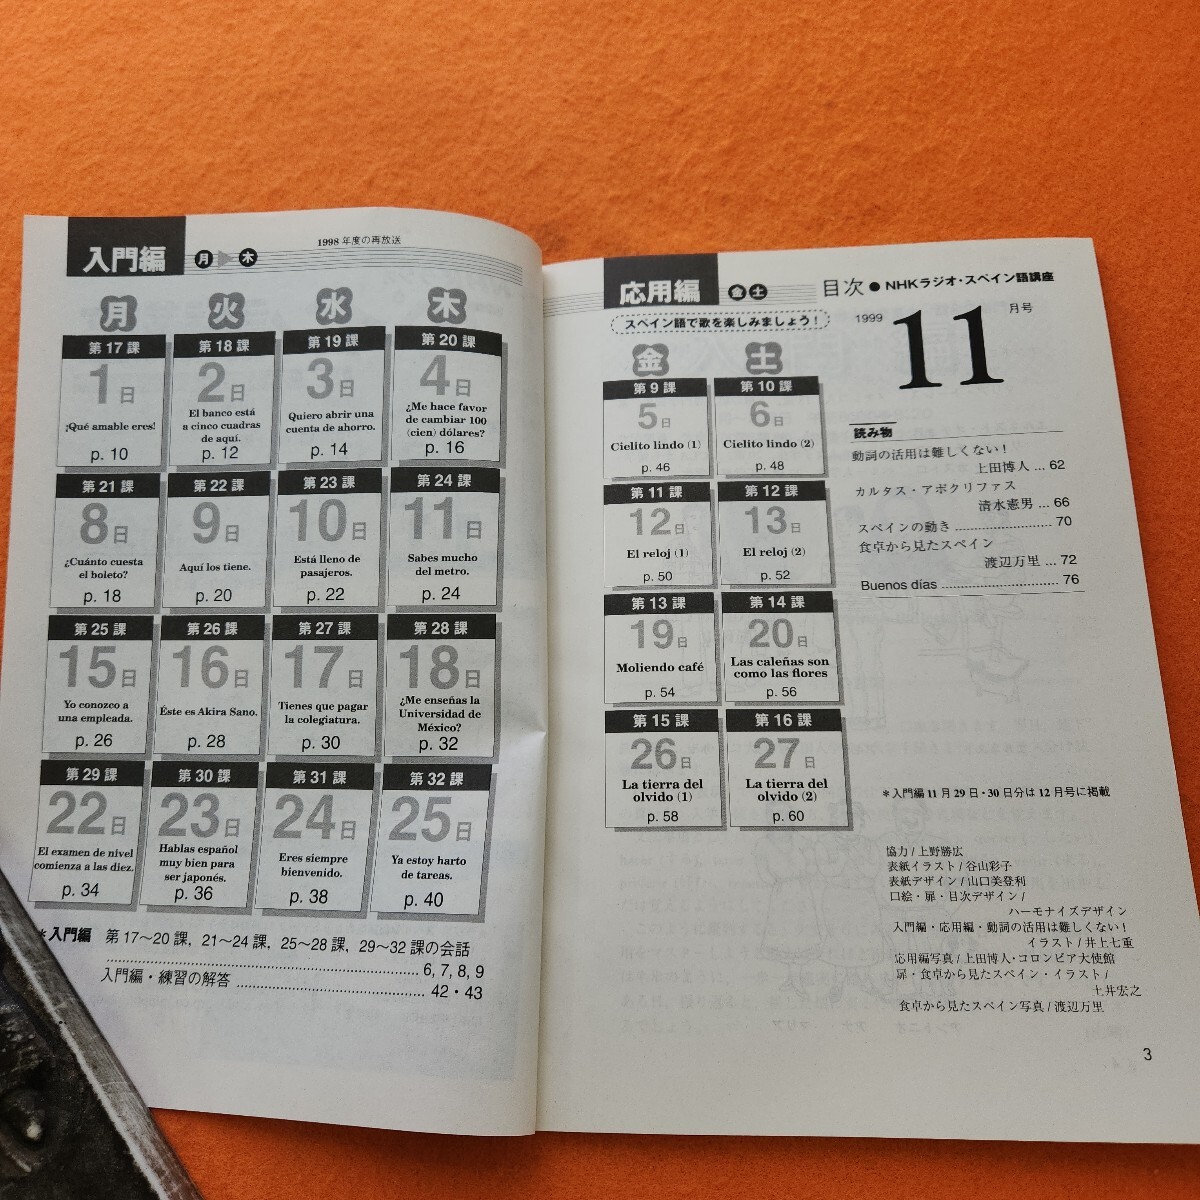 入門編 月 木
1998 年度の再放送
月 火 水 木
第 17 課
1日
¡Qué amable eres!
p. 10
第 18 課
2日
El banco está
a cinco cuadras
de aquí.
p. 12
第 19 課
3日
Quiero abrir una
cuenta de ahorro.
p. 14
第 20 課
4日
¿Me hace favor
de cambiar 100
(cien) dólares?
p. 16
第 21 課
8日
¿Cuánto cuesta
el boleto?
p. 18
第 22 課
9日
Aquí los tiene.
p. 20
第 23 課
10日
Está lleno de
pasajeros.
p. 22
第 24 課
11日
Sabes mucho
del metro.
p. 24
第 25 課
15日
Yo conozco a
una empleada.
p. 26
第 26 課
16日
Éste es Akira Sano.
p. 28
第 27 課
17日
Tienes que pagar
la colegiatura.
p. 30
第 28 課
18日
¿Me enseñas la
Universidad de
México?
p. 32
第 29 課
22日
El examen de nivel
comienza a las diez.
p. 34
第 30 課
23日
Hablas español
muy bien para
ser japonés.
p. 36
第 31 課
24日
Eres siempre
bienvenido.
p. 38
第 32 課
25日
Ya estoy harto
de tareas.
p. 40
*入門編 第 17〜20 課, 21〜24 課, 25〜28 課, 29〜32 課の会話
6, 7, 8, 9
入門編・練習の解答 42・43
応用編 金 土
スペイン語で歌を楽しみましょう!
目次●NHKラジオ・スペイン語講座
1999 11 月号
金 土
第 9 課
5日
Cielito lindo (1)
p. 46
第 10 課
6日
Cielito lindo (2)
p. 48
第 11 課
12日
El reloj (1)
p. 50
第 12 課
13日
El reloj (2)
p. 52
第 13 課
19日
Moliendo café
p. 54
第 14 課
20日
Las caleñas son
como las flores
p. 56
第 15 課
26日
La tierra del
olvido (1)
p. 58
第 16 課
27日
La tierra del
olvido (2)
p. 60
読み物
動詞の活用は難しくない!
上田博人 ... 62
カルタス・アポクリファス
清水憲男 ... 66
スペインの動き ........................ 70
食卓から見たスペイン
渡辺万里 ... 72
Buenos días ............................ 76
*入門編 11 月 29 日・30 日分は 12 月号に掲載
協力/上野勝広
表紙イラスト/谷山彩子
表紙デザイン/山口美登利
口絵・扉・目次デザイン/
ハーモナイズデザイン
入門編・応用編・動詞の活用は難しくない!
イラスト/井上七重
応用編写真/上田博人・コロンビア大使館
扉・食卓から見たスペイン・イラスト/
土井宏之
食卓から見たスペイン写真/渡辺万里
3